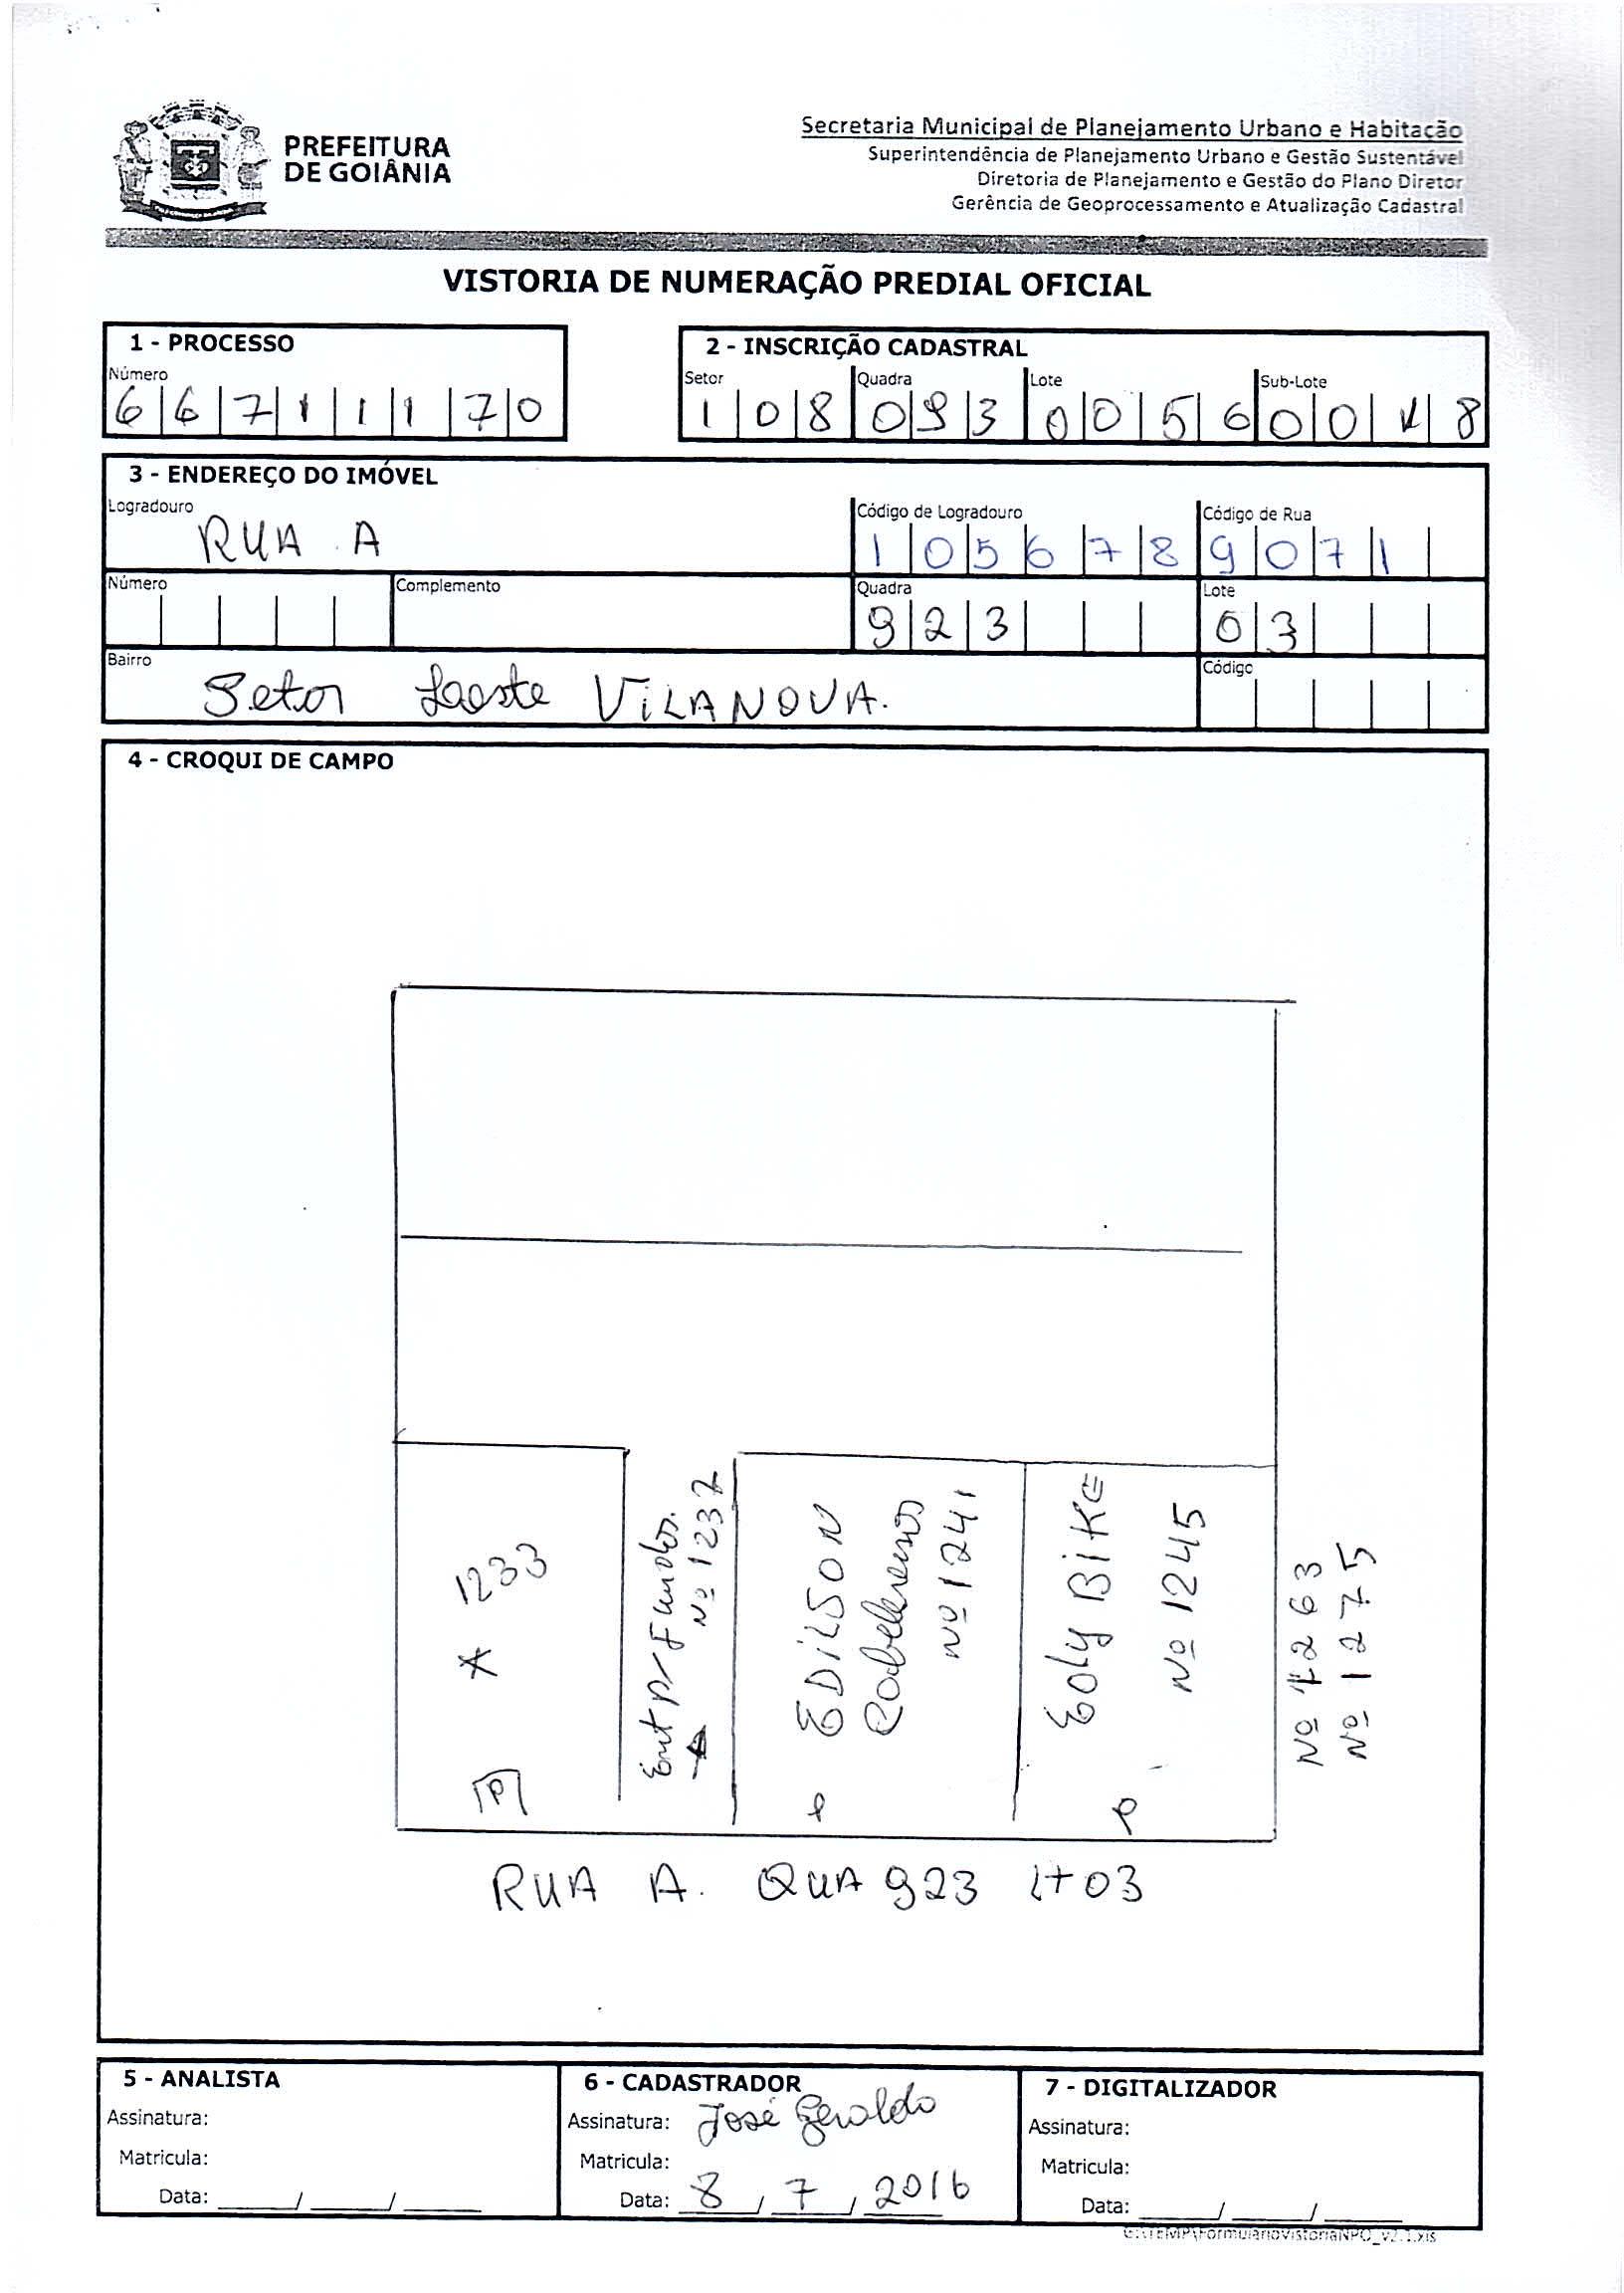 PREFEITURA
DE GOIÂNIA
Secretaria Municipal de Planejamento Urbano e Habitação
Superintendência de Planejamento Urbano e Gestão Sustentável
Diretoria de Planejamento e Gestão do Plano Diretor
Gerência de Geoprocessamento e Atualização Cadastral
VISTORIA DE NUMERAÇÃO PREDIAL OFICIAL
1 - PROCESSO
Número
66711170
2 - INSCRIÇÃO CADASTRAL
Setor Quadra Lote Sub-Lote
108 093 0056 00 8
3 - ENDEREÇO DO IMÓVEL
Logradouro Código de Logradouro Código de Rua
RUA A 105678 9071
Número Complemento Quadra Lote
923 03
Bairro Código
Setor Leste VILA NOVA.
4 - CROQUI DE CAMPO
1233
Ent p/ Fundos.
Nº 1237
EDILSON
Cabelereiros
Nº 1241
Eoly BIKE
Nº 1245
Nº 1263
Nº 1275
P
P
P
RUA A. QUA 923 LT 03
5 - ANALISTA
Assinatura:
Matricula:
Data: ____/____/____
6 - CADASTRADOR
Assinatura: José Geraldo
Matricula:
Data: 8 / 7 / 2016
7 - DIGITALIZADOR
Assinatura:
Matricula:
Data: ____/____/____
G:\TEMP\FormularioVistoriaNPO_v2.1.xls